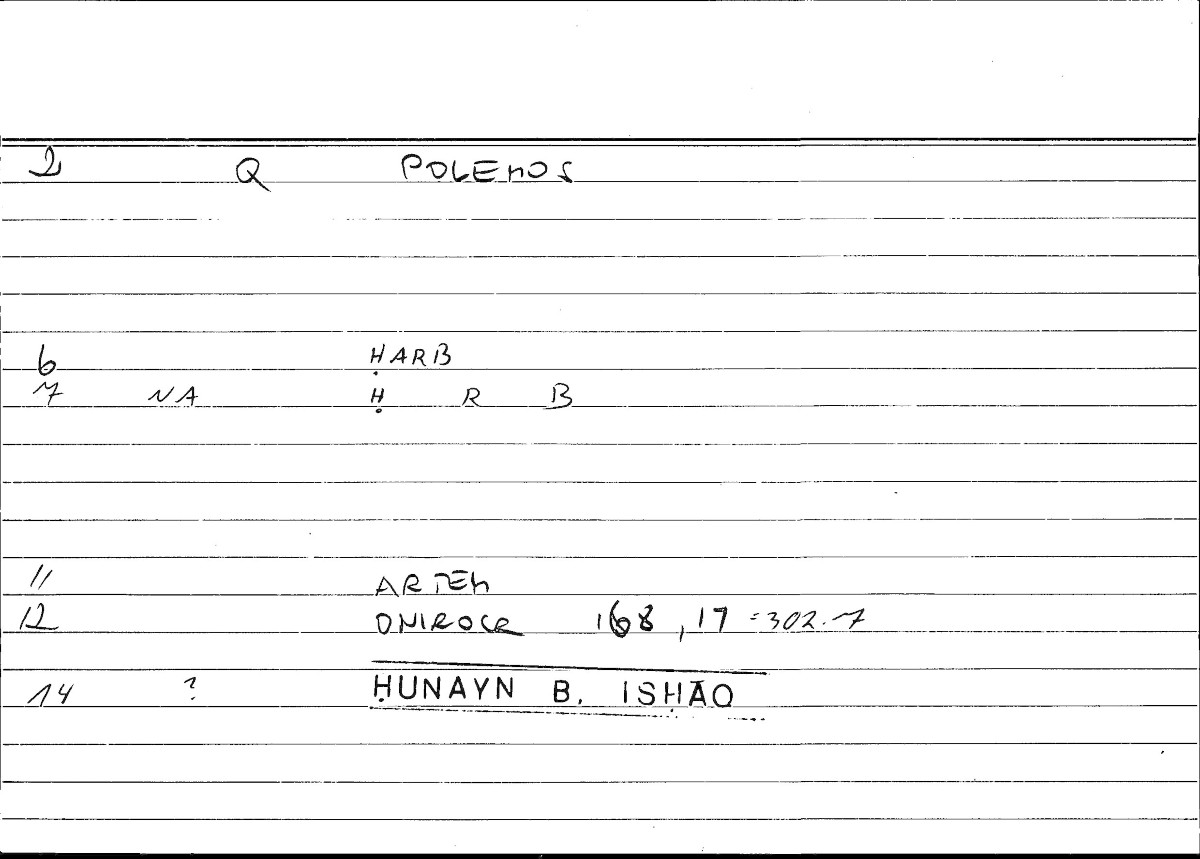 2 Q POLEMOS
6 ḤARB
7 NA Ḥ R B
11 ARTEM
12 ONIROCR 168,17 = 302.7
14 ? ḤUNAYN B. ISḤĀQ